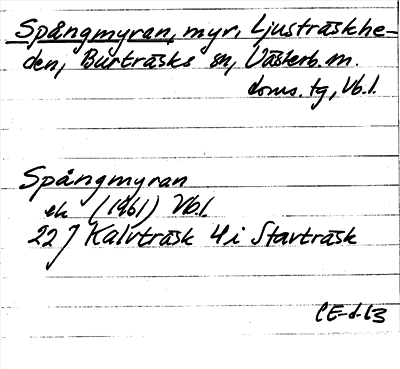 Spångmyran, myr, Ljusträskhe-
den, Burträsks sn, Västerb. m.
doms. tg, Vb.l.
Spångmyran
ek (1961) Vb.l
22 J Kalvträsk 4 i Stavträsk